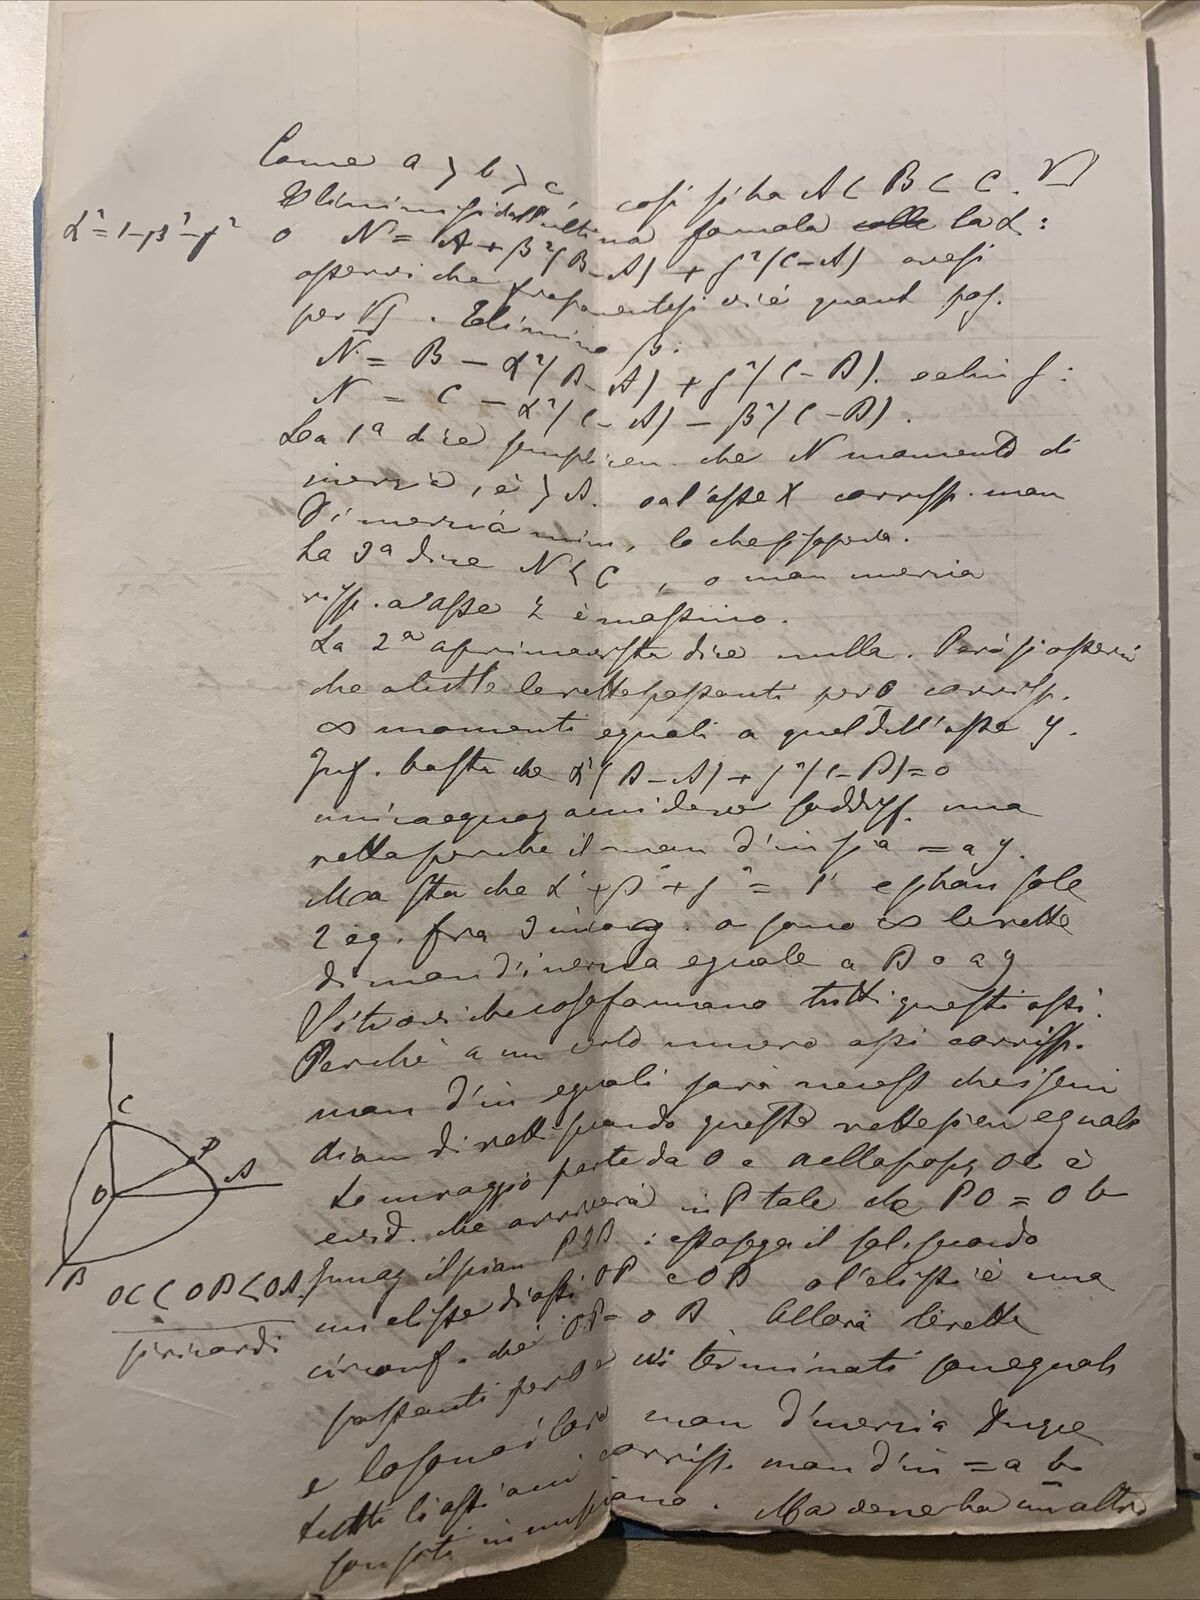 Come a > b > c, così si ha A < B < C.
Eliminisi dall'ultima formola la α:
α² = 1 - β² - γ²
o N = A + β²(B-A) + γ²(C-A) ovesi
osservi che fraparentesi vi è quant pos.
per . Elimino β:
N = B - α²(B-A) + γ²(C-B). edin γ:
N = C - α²(C-A) - β²(C-B).
La 1ª dice semplicem. che N momento di
inerzia, è > A. o all'asse X corrisp. mom
d'inerzia min, lo che si sapeva.
La 3ª dice N < C, o mom inerzia
risp. al asse Z è massimo.
La 2ª aprimavista dice nulla. Però si osservi
che a tutte le rette passanti per O corrisp.
∞ momenti eguali a quel dell'asse y.
Inf. basta che α²(B-A) + γ²(C-B) = 0
unica equaz a cui deve soddisf. una
retta perchè il mom d'in sia = a y.
Ma sta che α² + β² + γ² = 1 e si han sole
2 eq. fra 3 incog. o sono ∞ le rette
di mom d'inerzia eguale a B o a y
Si trovi che cosa formano tutti questi assi.
Perchè a un certo numero assi corrisp.
mom d'in eguali sarà necess che i semi
diam di rett quando queste rette sien eguali
Se un raggio parte da O e nella posiz OC è
evid. che arriverà in P tale che PO = OB
Imag il pian POB : essosega il sol. secondo
un elisse di assi OP e OB o l'elissi è una
circonf. che OP = OB. Allora le rette
passanti per O e ivi terminati son eguali
e lo sono i loro mom d'inerzia Dunque
tutti li assi a cui corrisp. mom d'in = a B
son siti in un piano. Ma vene ha un altro
C
P
O
A
B
OC < OB < OA
si ricordi